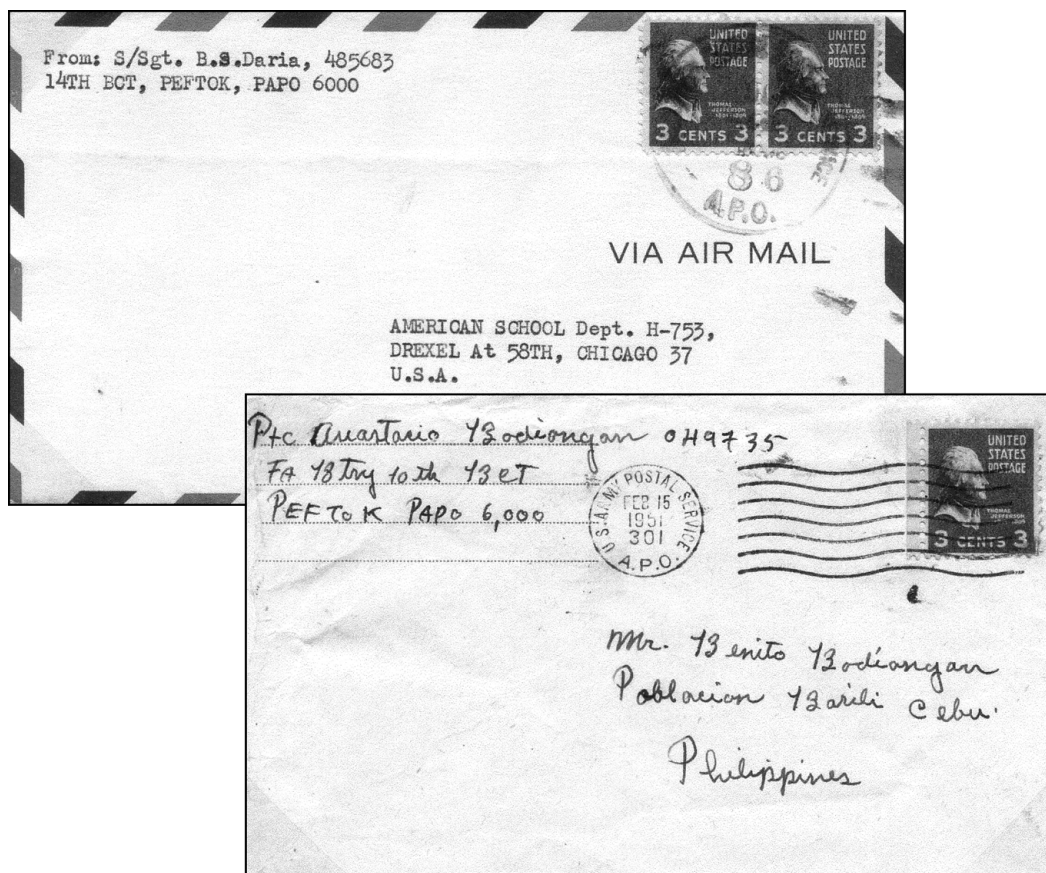 From: S/Sgt. B.S.Daria, 485683
14TH BCT, PEFTOK, PAPO 6000
UNITED
STATES
POSTAGE
THOMAS
JEFFERSON
1801-1809
3 CENTS 3
UNITED
STATES
POSTAGE
THOMAS
JEFFERSON
1801-1809
3 CENTS 3
86
A.P.O.
VIA AIR MAIL
AMERICAN SCHOOL Dept. H-753,
DREXEL At 58TH, CHICAGO 37
U.S.A.
Pfc Anastacio Bodiongan 049735
FA Btry 10th BCT
PEFTOK PAPO 6,000
U.S. ARMY POSTAL SERVICE
FEB 15
1951
301
A.P.O.
UNITED
STATES
POSTAGE
THOMAS
JEFFERSON
3 CENTS 3
Mr. Benito Bodiongan
Poblacion Barili Cebu.
Philippines